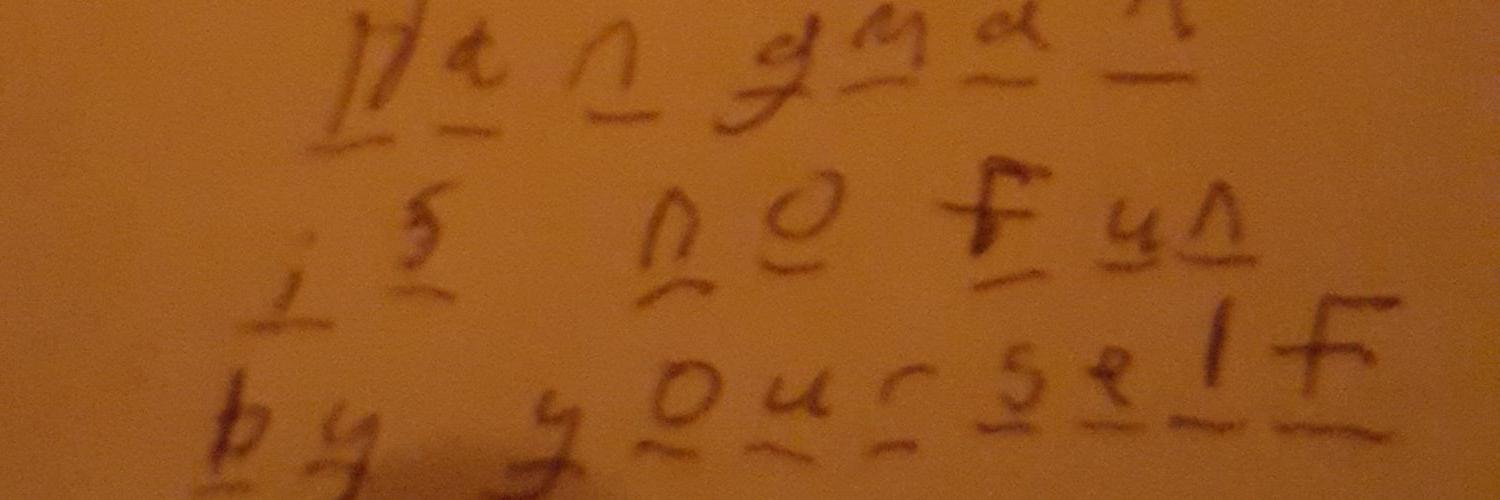 Hangman
is no fun
by yourself